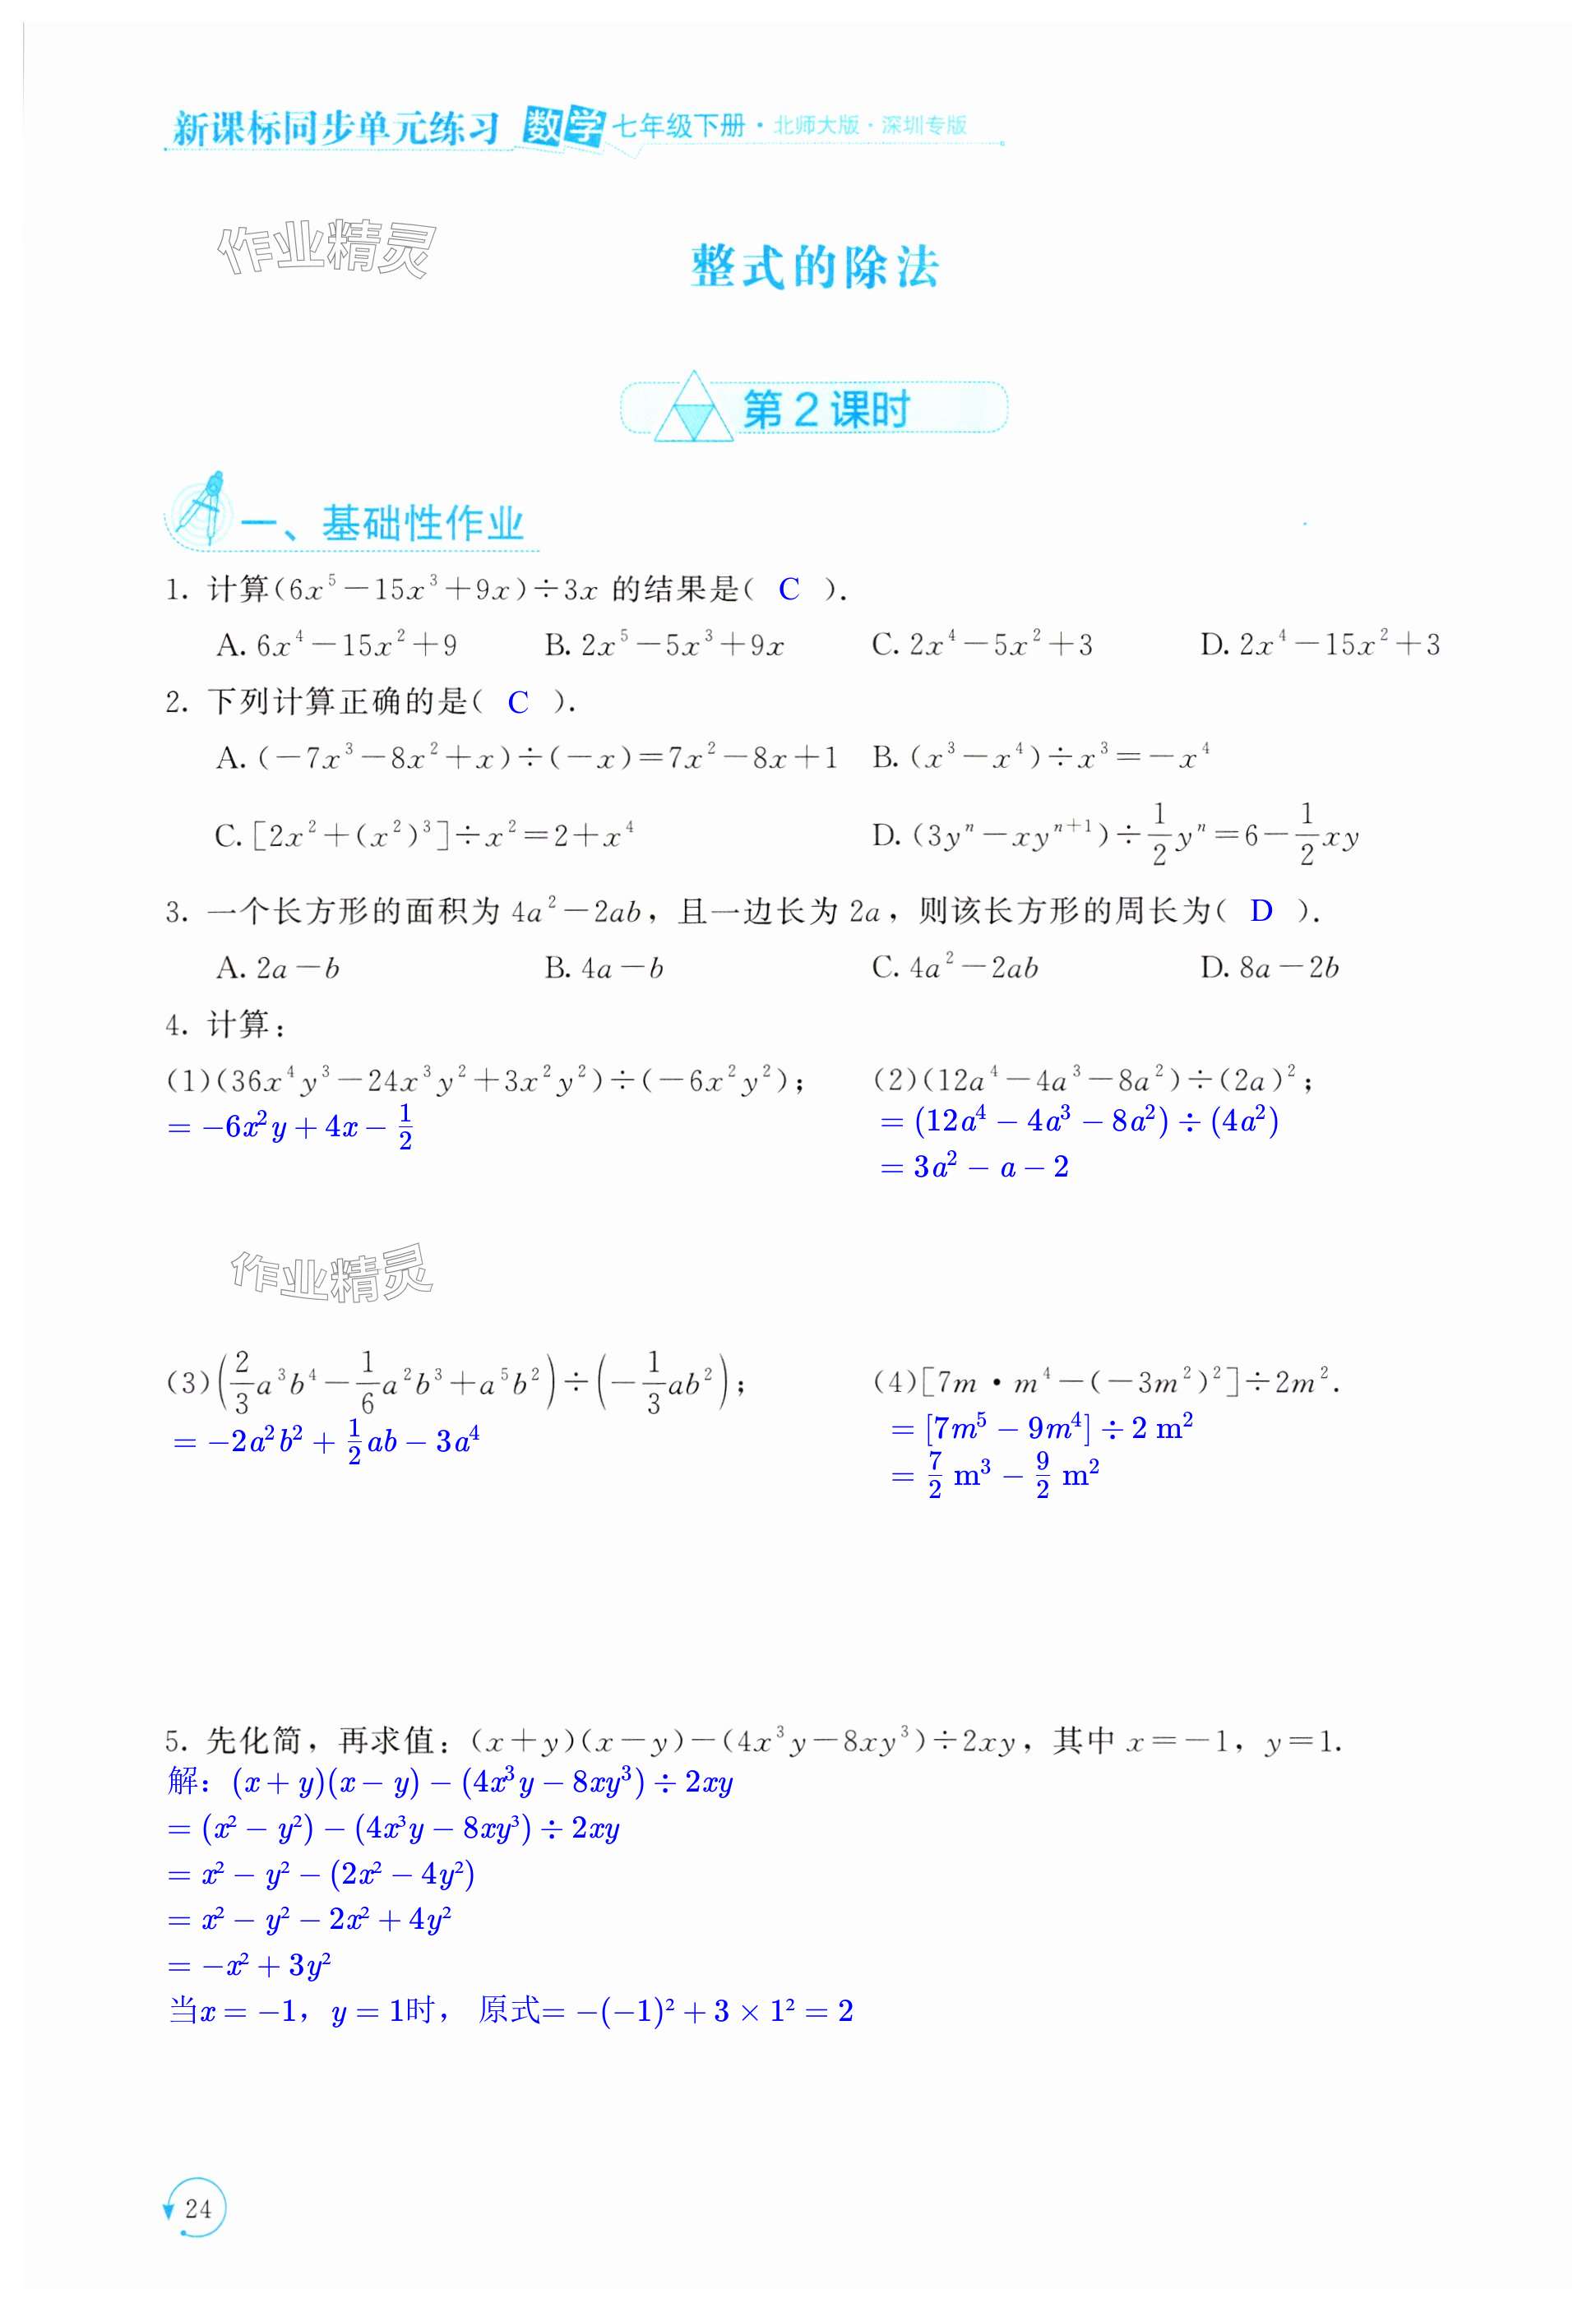 新课标同步单元练习 数学 七年级下册·北师大版·深圳专版
作业精灵
整式的除法
第2课时
一、基础性作业
1. 计算(6x⁵－15x³＋9x)÷3x 的结果是( C ).
A. 6x⁴－15x²＋9 B. 2x⁵－5x³＋9x C. 2x⁴－5x²＋3 D. 2x⁴－15x²＋3
2. 下列计算正确的是( C ).
A. (－7x³－8x²＋x)÷(－x)＝7x²－8x＋1 B. (x³－x⁴)÷x³＝－x⁴
C. [2x²＋(x²)³]÷x²＝2＋x⁴ D. (3yⁿ－xyⁿ⁺¹)÷1/2yⁿ＝6－1/2xy
3. 一个长方形的面积为 4a²－2ab，且一边长为 2a，则该长方形的周长为( D ).
A. 2a－b B. 4a－b C. 4a²－2ab D. 8a－2b
4. 计算：
(1)(36x⁴y³－24x³y²＋3x²y²)÷(－6x²y²)； (2)(12a⁴－4a³－8a²)÷(2a)²；
= −6x²y + 4x − 1/2 = (12a⁴ − 4a³ − 8a²) ÷ (4a²)
= 3a² − a − 2
作业精灵
(3)(2/3a³b⁴－1/6a²b³＋a⁵b²)÷(－1/3ab²)； (4)[7m·m⁴－(－3m²)²]÷2m².
= −2a²b² + 1/2ab − 3a⁴ = [7m⁵ − 9m⁴] ÷ 2 m²
= 7/2 m³ − 9/2 m²
5. 先化简，再求值：(x＋y)(x－y)－(4x³y－8xy³)÷2xy，其中 x＝－1，y＝1.
解：(x + y)(x − y) − (4x³y − 8xy³) ÷ 2xy
= (x² − y²) − (4x³y − 8xy³) ÷ 2xy
= x² − y² − (2x² − 4y²)
= x² − y² − 2x² + 4y²
= −x² + 3y²
当x = −1，y = 1时， 原式= −(−1)² + 3 × 1² = 2
24